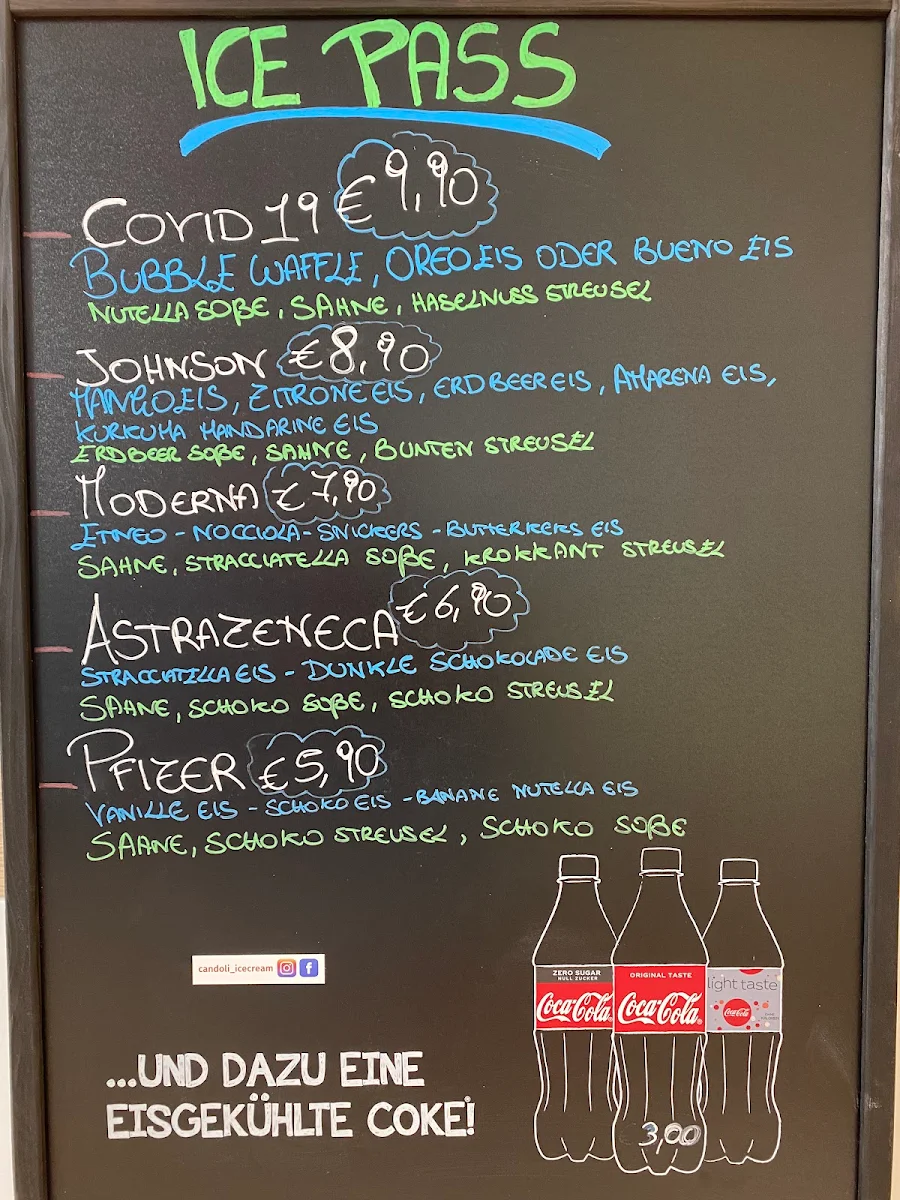 ICE PASS
COVID 19 €9,90
BUBBLE WAFFLE, OREO EIS ODER BUENO EIS
NUTELLA SOßE, SAHNE, HASELNUSS STREUSEL
JOHNSON €8,90
MANGO EIS, ZITRONE EIS, ERDBEER EIS, AMARENA EIS,
KURKUMA MANDARINE EIS
ERDBEER SOßE, SAHNE, BUNTEN STREUSEL
MODERNA €7,90
ETNEO - NOCCIOLA - SNICKERS - BUTTERKEKS EIS
SAHNE, STRACCIATELLA SOßE, KROKKANT STREUSEL
ASTRAZENECA €6,90
STRACCIATELLA EIS - DUNKLE SCHOKOLADE EIS
SAHNE, SCHOKO SOßE, SCHOKO STREUSEL
PFIZER €5,90
VANILLE EIS - SCHOKO EIS - BANANE NUTELLA EIS
SAHNE, SCHOKO STREUSEL, SCHOKO SOßE
candoli_icecream
ZERO SUGAR
NULL ZUCKER
Coca-Cola
ORIGINAL TASTE
Coca-Cola
light taste
Coca-Cola
...UND DAZU EINE
EISGEKÜHLTE COKE!
3,00